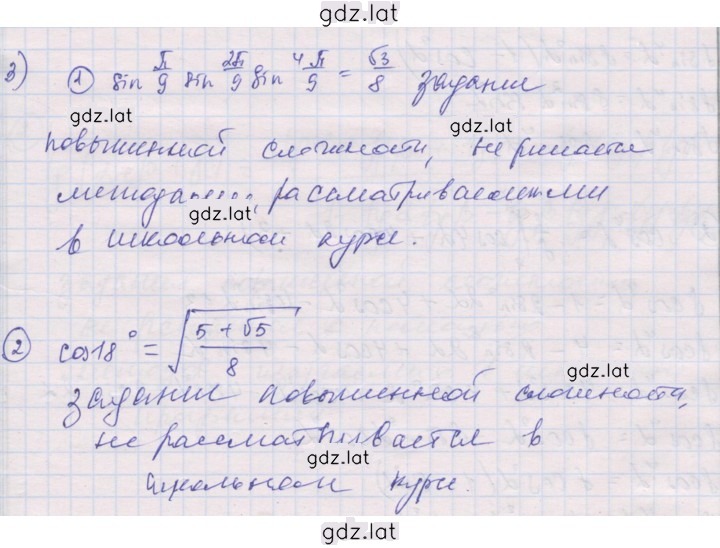 gdz.lat
3) ① sin π/9 sin 2π/9 sin 4π/9 = √3/8 задание
gdz.lat
повышенной сложности, не решается
методами, рассматриваемыми
gdz.lat
в школьном курсе.
gdz.lat
② cos18° = √((5 + √5)/8)
gdz.lat
задание повышенной сложности,
не рассматривается в
gdz.lat
школьном курсе.
gdz.lat